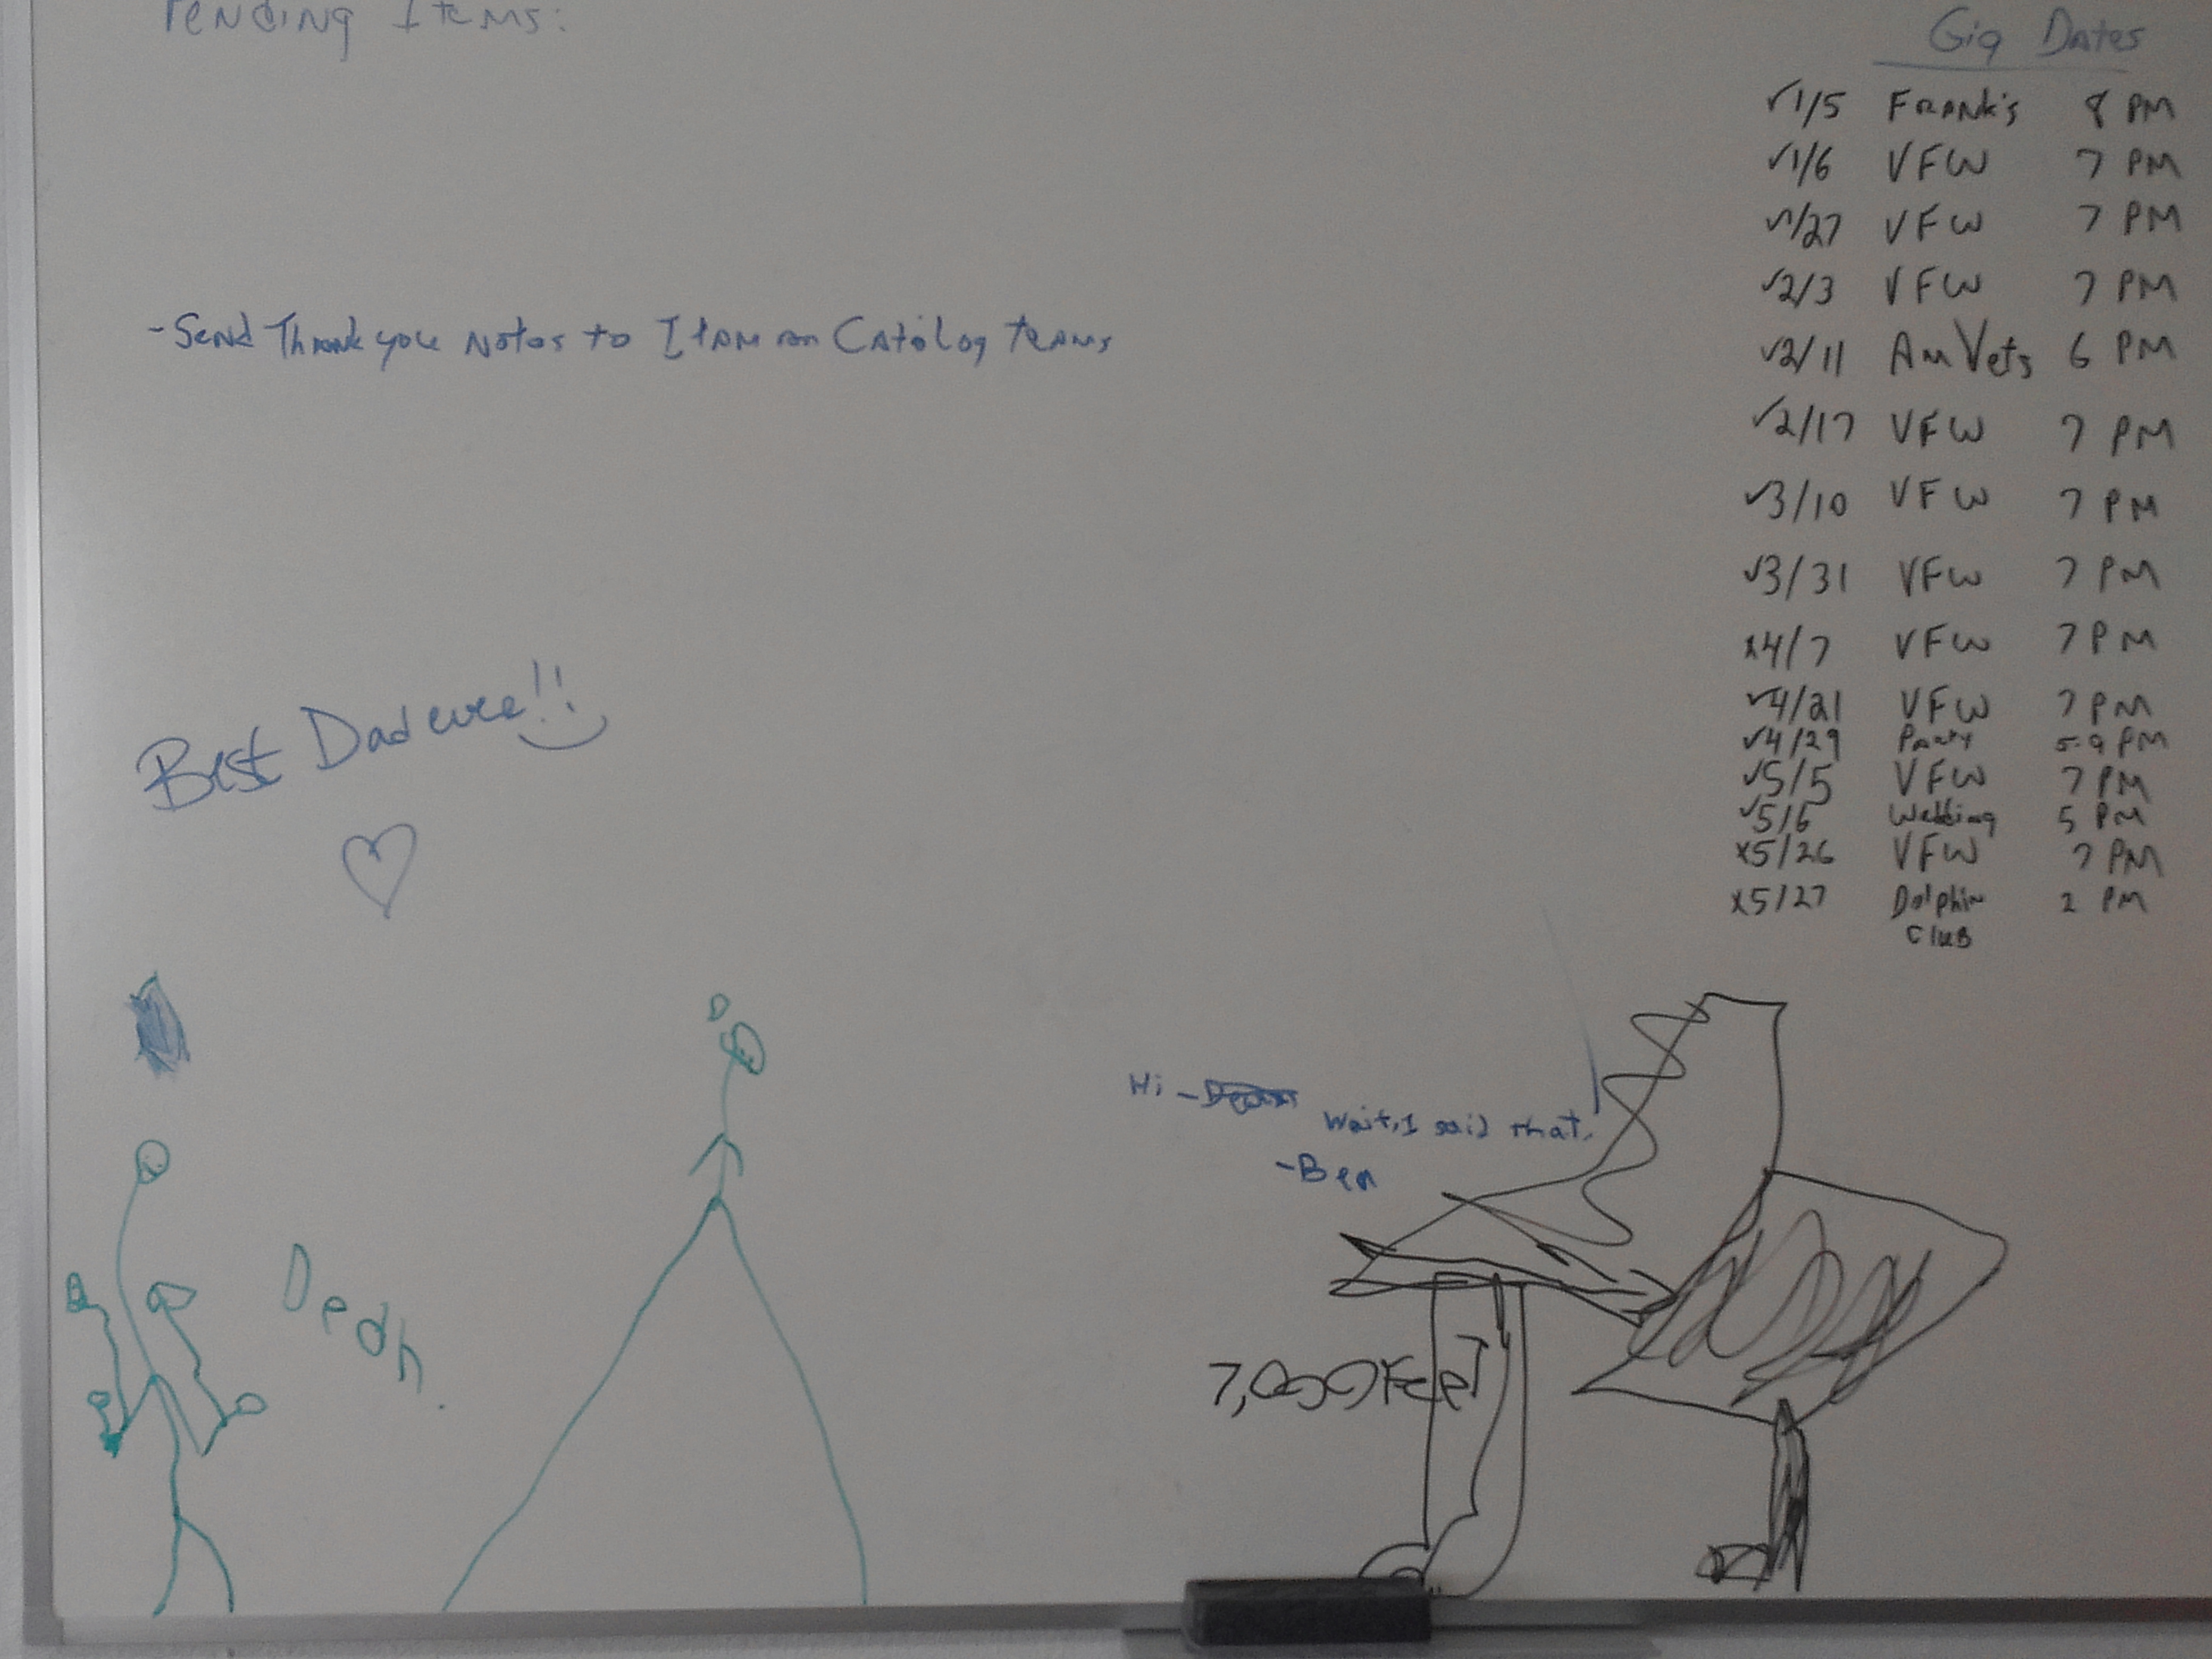 Pending Items:
-Send Thank you Notes to ITAM on Catalog teams
Best Dad ever!!
Gig Dates
✓1/5 Frank's 8 PM
✓1/6 VFW 7 PM
✓1/27 VFW 7 PM
✓2/3 VFW 7 PM
✓2/11 AmVets 6 PM
✓2/17 VFW 7 PM
✓3/10 VFW 7 PM
✓3/31 VFW 7 PM
x4/7 VFW 7 PM
✓4/21 VFW 7 PM
✓4/29 Party 5-9 PM
✓5/5 VFW 7 PM
✓5/6 Wedding 5 PM
x5/26 VFW 7 PM
x5/27 Dolphin 2 PM
Club
Hi -
Wait, I said that.
-Ben
Dedh.
7,000 FeeT